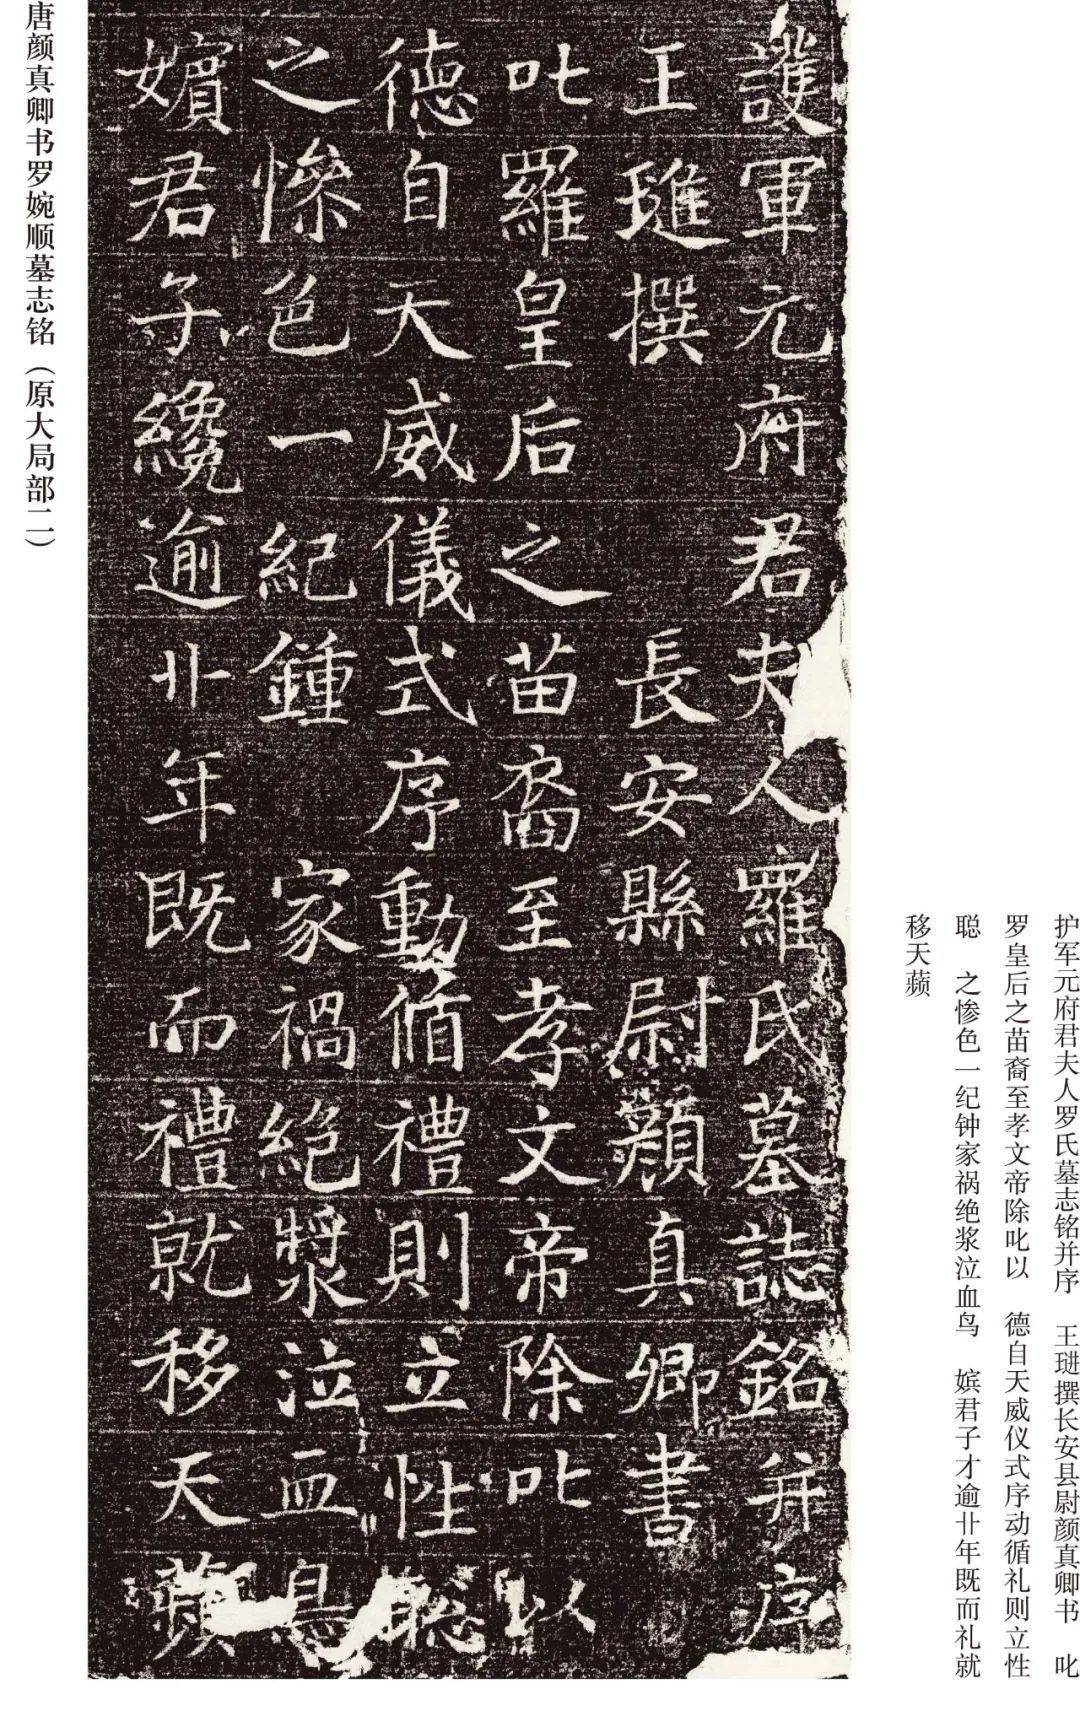 護軍元府君夫人羅氏墓誌銘并序
王琎撰　長安縣尉顏真卿書
叱羅皇后之苗裔至孝文帝除叱以
德自天威儀式序動循禮則立性聡
之慘色一紀鍾　家禍絶漿泣血鳥
嬪君子纔逾廿年既而禮就移天蘋
唐颜真卿书罗婉顺墓志铭（原大局部二）
护军元府君夫人罗氏墓志铭并序　王琎撰长安县尉颜真卿书　叱
罗皇后之苗裔至孝文帝除叱以　德自天威仪式序动循礼则立性
聪　之惨色一纪钟家祸绝浆泣血鸟　嫔君子才逾廿年既而礼就
移天蘋